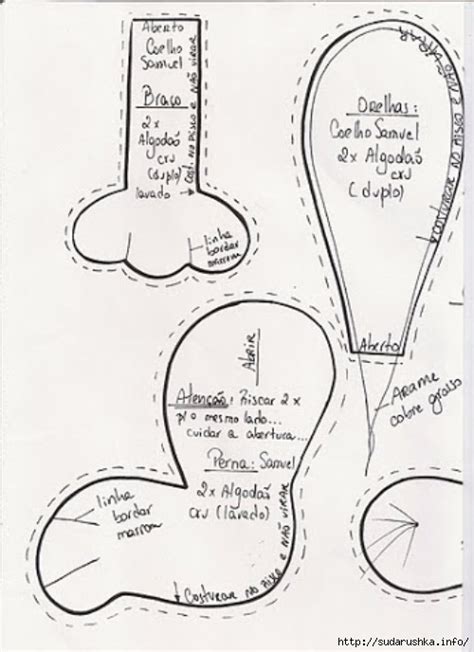 Aberto
Coelho
Samuel
Braço
2x
Algodão
cru
(duplo)
lavado
Cost. no risco e não virar
linha
bordar
marrom
Orelhas:
Coelho Samuel
2x Algodão
cru
(duplo)
Costurar no risco e não virar
Aberto
Arame
cobre grosso
Abrir
Atenção: Riscar 2x
p/ o mesmo lado...
cuidar a abertura...
Perna: Samuel
2x Algodão
cru (lavado)
linha
bordar
marrom
Costurar no risco e não virar
http://sudarushka.info/